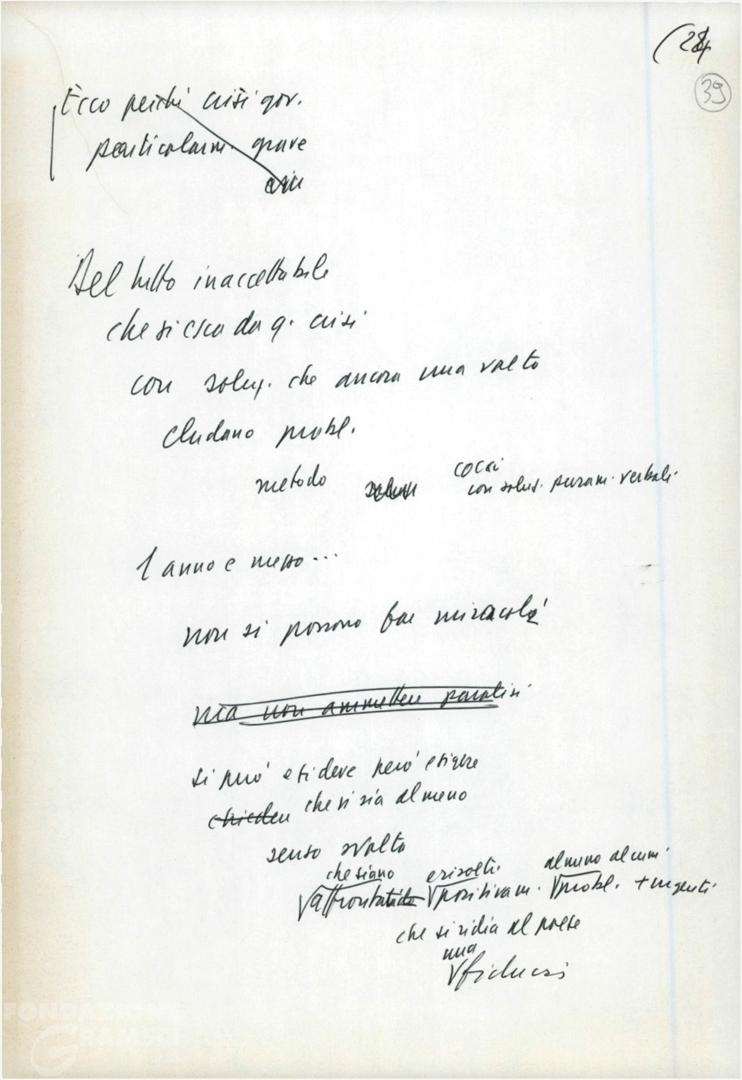 (28
39
Ecco perché crisi gov.
particolarm. grave
Del tutto inaccettabile
che si esca da q. crisi
con soluz. che ancora una volta
eludano probl.
metodo
con soluz. puram. verbali
1 anno e mezzo...
non si possono fare miracoli
ma non ammettere paralisi
si può e si deve però esigere
chiedere che si sia almeno
senso svolta
che siano e risolti almeno alcuni
affrontati positivam. probl. + urgenti
che si ridia al paese
una
fiducia
FONDAZIONE
GRAMSCI